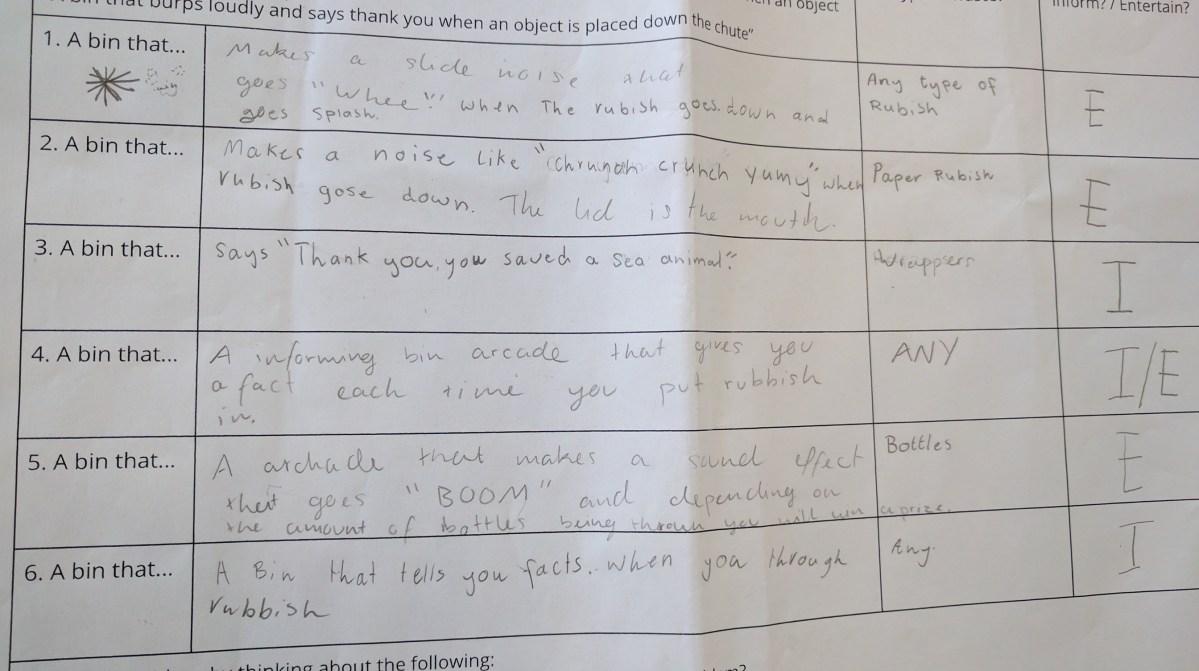 that burps loudly and says thank you when an object is placed down the chute"
an object
Inform? / Entertain?
1. A bin that...
Makes a slide noise that
goes "Whee"! when The rubish goes down and
goes splash.
Any type of
Rubish
E
2. A bin that...
Makes a noise like "chrunch crunch yumy" when
rubish gose down. The lid is the mouth.
Paper Rubish
E
3. A bin that...
Says "Thank you, you saved a sea animal".
Wrappers
I
4. A bin that...
A informing bin arcade that gives you
a fact each time you put rubbish
in.
ANY
I/E
5. A bin that...
A archade that makes a sund effect
that goes "BOOM" and depending on
the amount of bottles being thrown you will win a prize.
Bottles
E
6. A bin that...
A Bin that tells you facts. when you through
rubbish
Any.
I
thinking about the following: